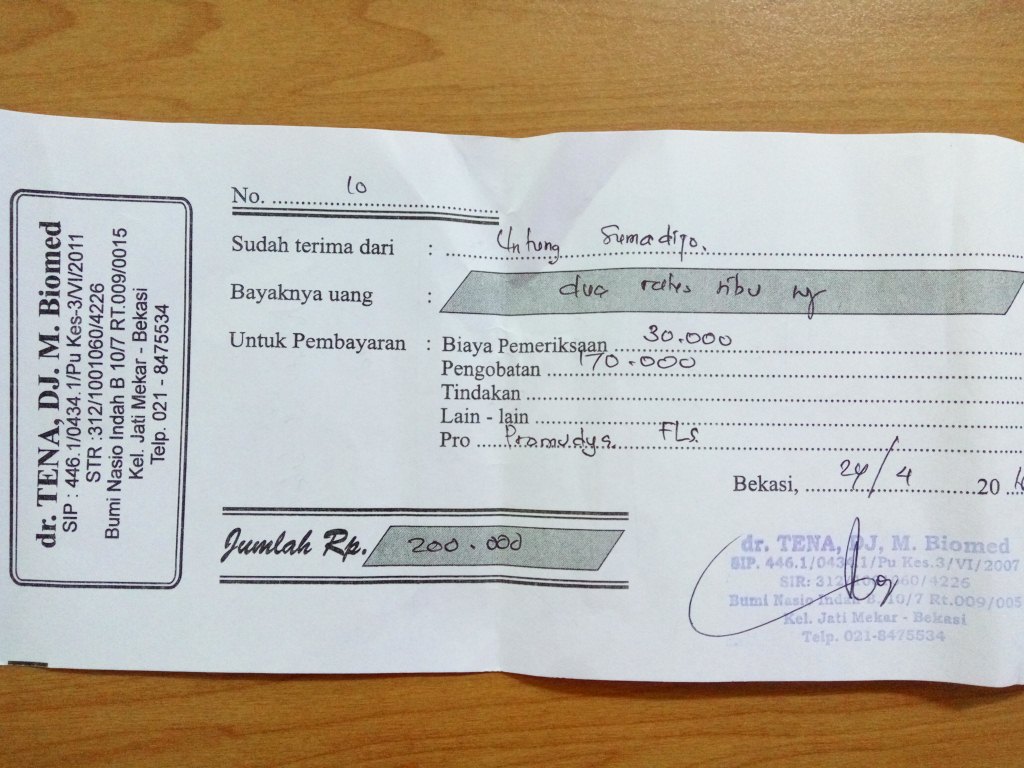 dr. TENA, DJ. M. Biomed
SIP : 446.1/0434.1/Pu Kes-3/VI/2011
STR :312/1001060/4226
Bumi Nasio Indah B 10/7 RT.009/0015
Kel. Jati Mekar - Bekasi
Telp. 021 - 8475534
No. 10
Sudah terima dari : Untung Sumadiyo.
Bayaknya uang : dua ratus ribu
Untuk Pembayaran : Biaya Pemeriksaan 30.000
Pengobatan 170.000
Tindakan
Lain - lain
Pro Pramudya
Bekasi, 24/4 20
Jumlah Rp. 200.000
dr. TENA, DJ, M. Biomed
SIP. 446.1/0434.1/Pu Kes.3/VI/2007
SIR: /4226
Bumi Nasio Indah B. 10/7 Rt.009/005
Kel. Jati Mekar - Bekasi
Telp. 021-8475534